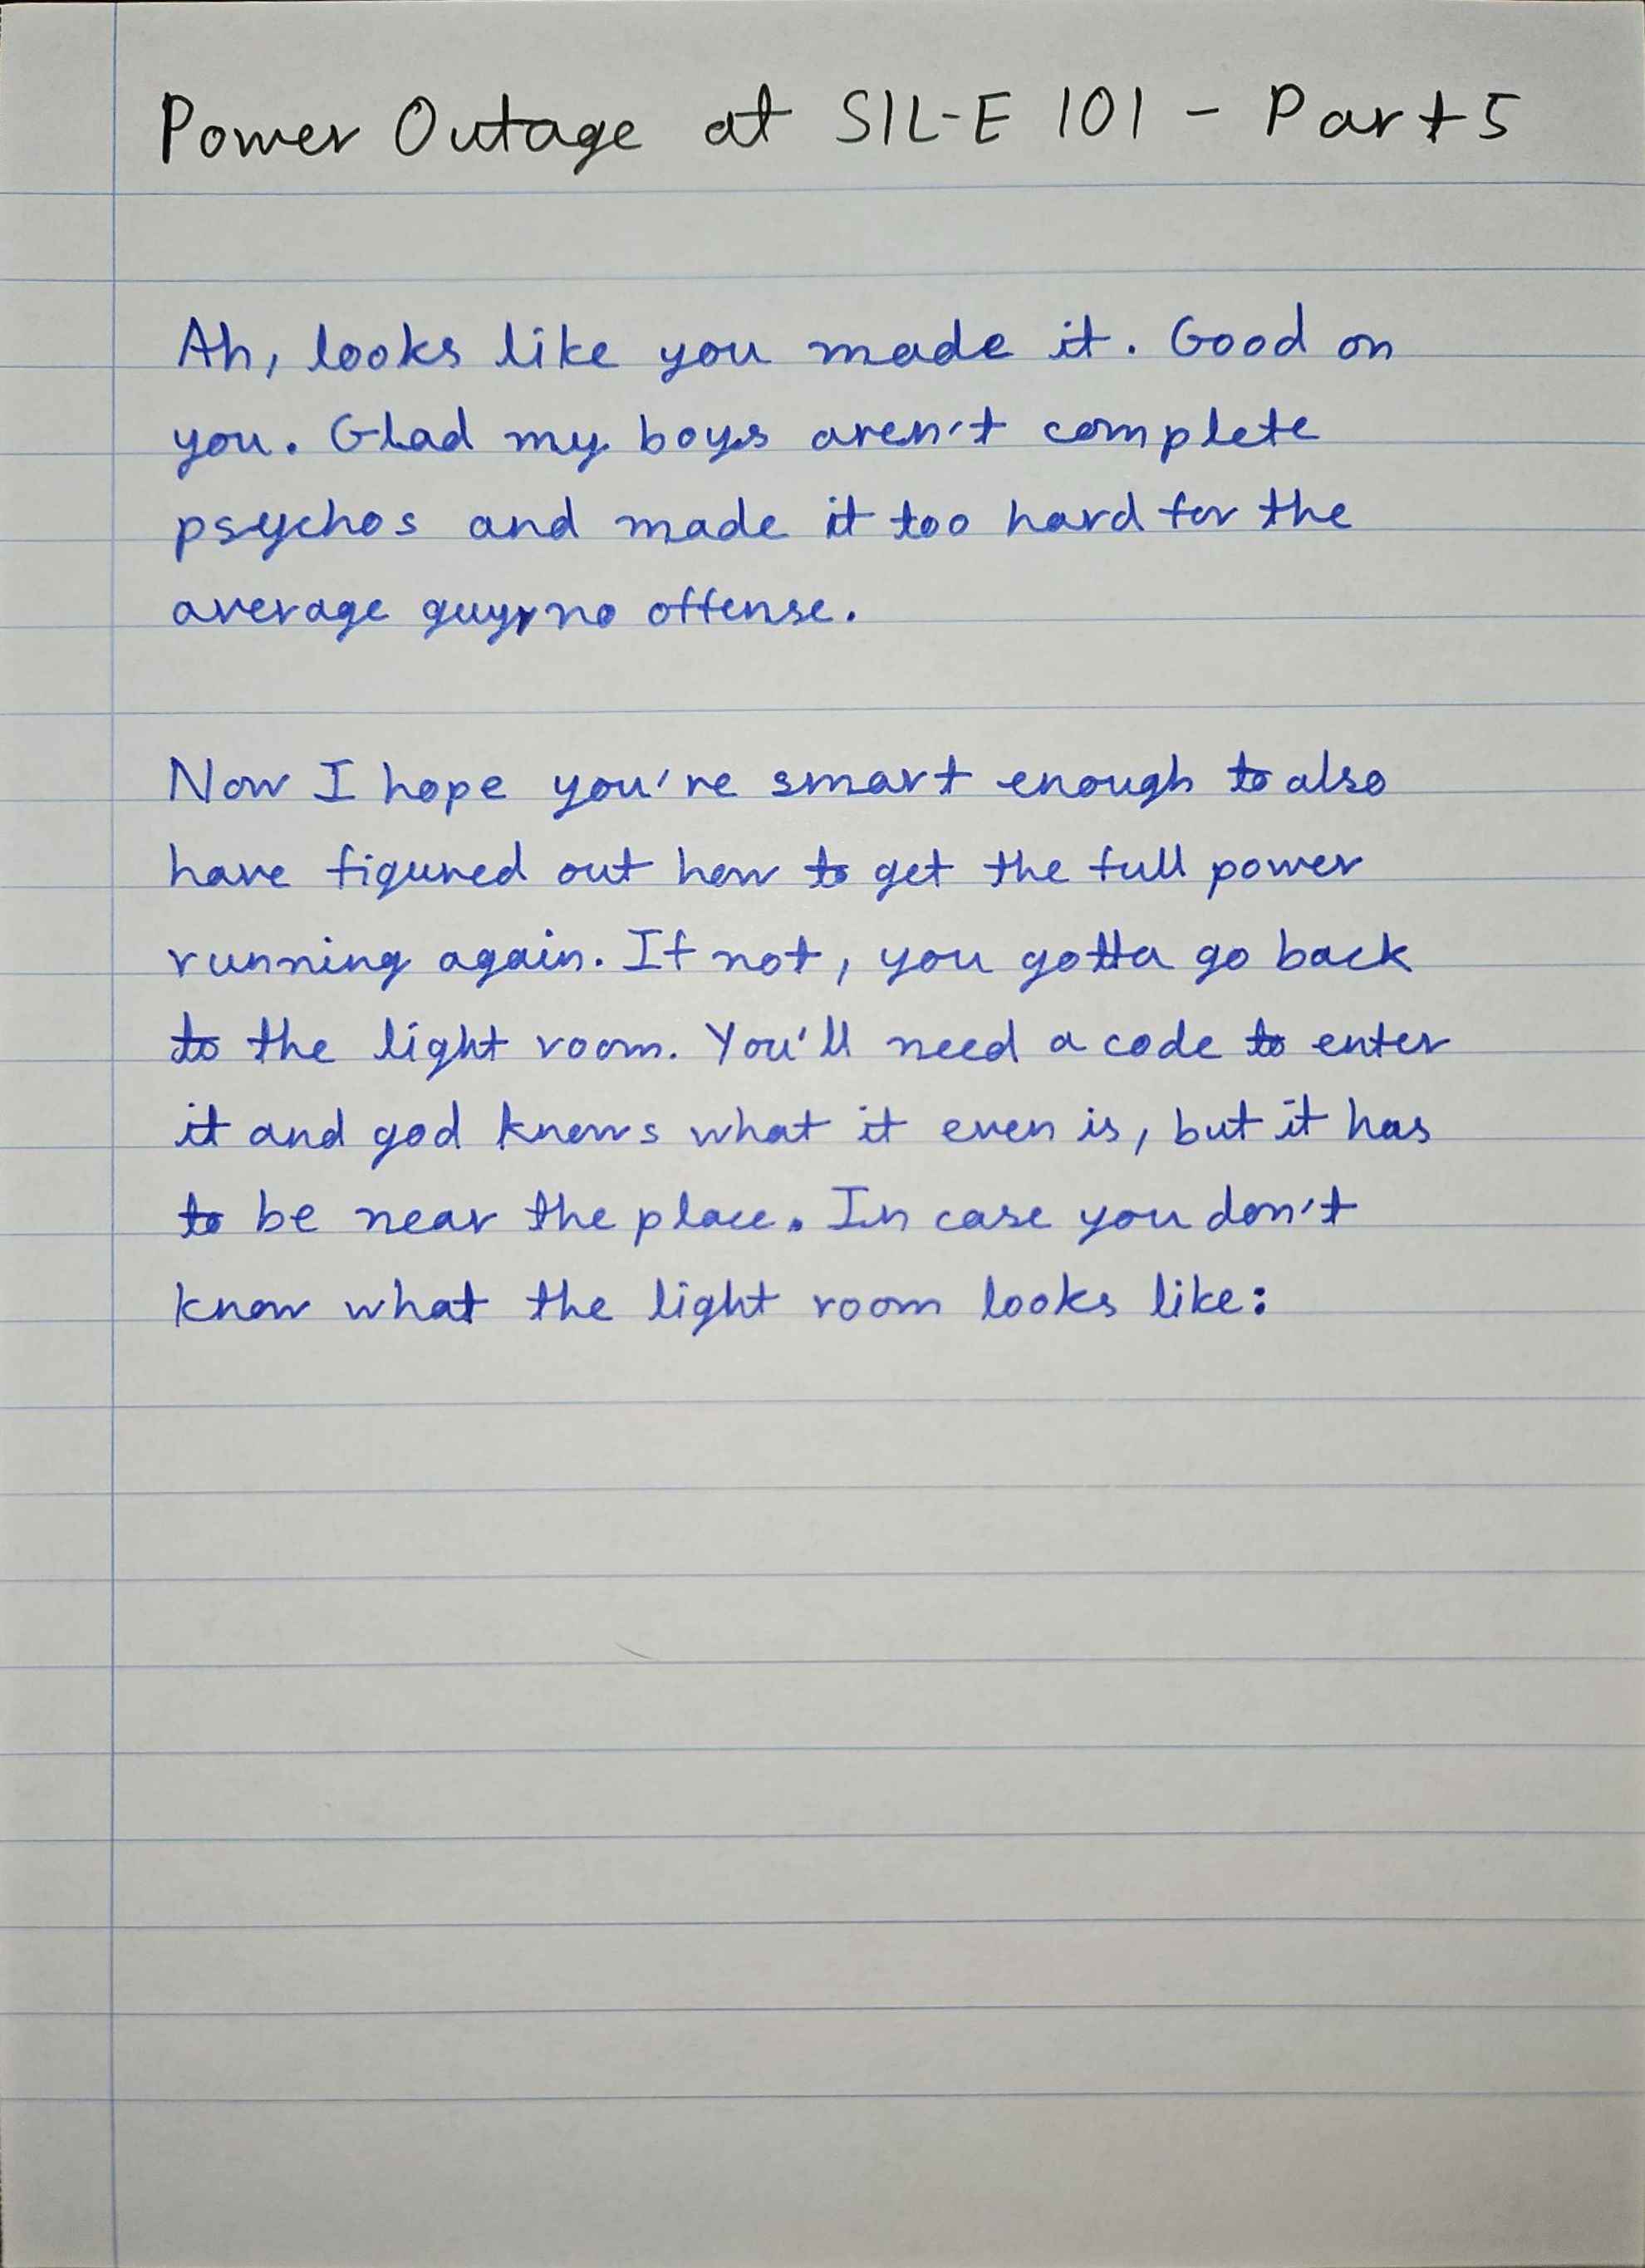 Power Outage at SIL-E 101 - Part 5
Ah, looks like you made it. Good on
you. Glad my boys aren't complete
psychos and made it too hard for the
average guy, no offense.
Now I hope you're smart enough to also
have figured out how to get the full power
running again. If not, you gotta go back
to the light room. You'll need a code to enter
it and god knows what it even is, but it has
to be near the place. In case you don't
know what the light room looks like: